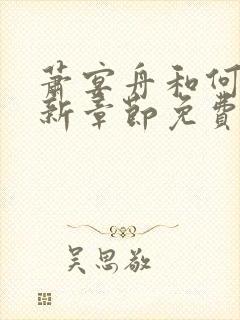 萧宴舟和何
新章节免费
吴思敬